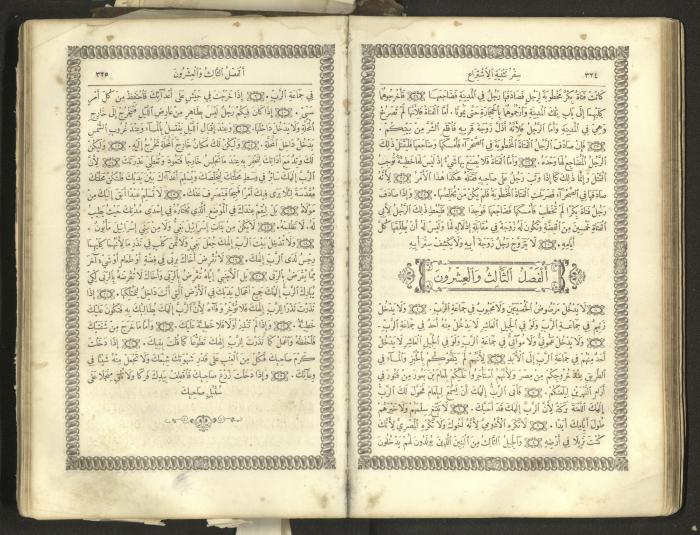 ٣٢٤ سِفْرُ تَثْنِيَةِ الِٱشْتِرَاعِ
كَانَتْ فَتَاةٌ بِكْرٌ مَخْطُوبَةٌ لِرَجُلٍ فَصَادَفَهَا رَجُلٌ فِي الْمَدِينَةِ فَضَاجَعَهَا فَأَخْرِجُوهُمَا
كِلَيْهِمَا إِلَى بَابِ تِلْكَ الْمَدِينَةِ وَارْجُمُوهُمَا بِالْحِجَارَةِ حَتَّى يَمُوتَا. أَمَّا الْفَتَاةُ فَلِأَنَّهَا لَمْ تَصْرُخْ
وَهِيَ فِي الْمَدِينَةِ وَأَمَّا الرَّجُلُ فَلِأَنَّهُ أَذَلَّ زَوْجَةَ قَرِيبِهِ فَٱقْلَعِ الشَّرَّ مِنْ بَيْنِكُمْ.
فَإِنْ صَادَفَ الرَّجُلُ الْفَتَاةَ الْمَخْطُوبَةَ فِي الصَّحْرَآءِ فَأَمْسَكَهَا وَضَاجَعَهَا فَلْيُقْتَلْ ذٰلِكَ
الرَّجُلُ الْمُضَاجِعُ لَهَا وَحْدَهُ. وَأَمَّا الْفَتَاةُ فَلَا تَصْنَعْ بِهَا شَيْئًا إِذْ لَيْسَ لَهَا خَطِيئَةٌ تُوجِبُ
الْقَتْلَ وَإِنَّمَا ذٰلِكَ كَمَا إِذَا وَثَبَ رَجُلٌ عَلَى صَاحِبِهِ فَقَتَلَهُ هٰكَذَا هٰذَا الْأَمْرُ لِأَنَّهُ
صَادَفَهَا فِي الصَّحْرَآءِ فَصَرَخَتِ الْفَتَاةُ الْمَخْطُوبَةُ فَلَمْ يَكُنْ مَنْ يُخَلِّصُهَا. وَإِذَا صَادَفَ
رَجُلٌ فَتَاةً بِكْرًا لَمْ تُخْطَبْ فَأَمْسَكَهَا فَضَاجَعَهَا فَوُجِدَا فَلْيُعْطِ ذٰلِكَ الرَّجُلُ لِأَبِي
الْفَتَاةِ خَمْسِينَ مِنَ الْفِضَّةِ وَتَكُونُ لَهُ زَوْجَةً فِي مُقَابَلَةِ إِذْلَالِهِ لَهَا وَلَيْسَ لَهُ أَنْ يُطَلِّقَهَا كُلَّ
أَيَّامِهِ. لَا يَتَزَوَّجْ رَجُلٌ زَوْجَةَ أَبِيهِ وَلَا يَكْشِفْ سِتْرَ أَبِيهِ
أَلْفَصْلُ الثَّالِثُ وَالْعِشْرُونَ
لَا يَدْخُلْ مَرْضُوضُ الْخُصْيَتَيْنِ وَلَا مَجْبُوبٌ فِي جَمَاعَةِ الرَّبِّ. وَلَا يَدْخُلْ
زَنِيمٌ فِي جَمَاعَةِ الرَّبِّ وَلَوْ فِي الْجِيلِ الْعَاشِرِ لَا يَدْخُلْ مِنْهُ أَحَدٌ فِي جَمَاعَةِ الرَّبِّ.
وَلَا يَدْخُلْ عَمُّونِيٌّ وَلَا مُوآبِيٌّ فِي جَمَاعَةِ الرَّبِّ وَلَوْ فِي الْجِيلِ الْعَاشِرِ لَا يَدْخُلْ
أَحَدٌ مِنْهُمْ فِي جَمَاعَةِ الرَّبِّ إِلَى الْأَبَدِ لِأَنَّهُمْ لَمْ يَتَلَقَّوْكُمْ بِالْخُبْزِ وَالْمَآءِ فِي
الطَّرِيقِ عِنْدَ خُرُوجِكُمْ مِنْ مِصْرَ وَلِأَنَّهُمُ ٱسْتَأْجَرُوا عَلَيْكُمْ بَلْعَامَ بْنَ بَعُورَ مِنْ فَتُورَ فِي
أَرَامِ النَّهْرَيْنِ لِيَلْعَنَكُمْ. فَأَبَى الرَّبُّ إِلٰهُكَ أَنْ يَسْمَعَ لِبَلْعَامَ فَحَوَّلَ لَكَ الرَّبُّ
إِلٰهُكَ اللَّعْنَةَ بَرَكَةً لِأَنَّ الرَّبَّ إِلٰهَكَ قَدْ أَحَبَّكَ. لَا تَلْتَمِسْ سِلْمَهُمْ وَلَا خَيْرَهُمْ
طُولَ أَيَّامِكَ أَبَدًا. لَا تَكْرَهِ الْأَدُومِيَّ لِأَنَّهُ أَخُوكَ وَلَا تَكْرَهِ الْمِصْرِيَّ لِأَنَّكَ
كُنْتَ نَزِيلًا فِي أَرْضِهِ وَالْجِيلُ الثَّالِثُ مِنَ الْبَنِينَ الَّذِينَ يُولَدُونَ لَهُمْ يَدْخُلُونَ
أَلْفَصْلُ الثَّالِثُ وَالْعِشْرُونَ ٣٢٥
فِي جَمَاعَةِ الرَّبِّ. إِذَا خَرَجْتَ فِي جَيْشٍ عَلَى أَعْدَآئِكَ فَٱحْتَفِظْ مِنْ كُلِّ أَمْرٍ
سَيِّئٍ. إِذَا كَانَ فِيكُمْ رَجُلٌ لَيْسَ بِطَاهِرٍ مِنْ عَارِضِ اللَّيْلِ فَلْيَخْرُجْ إِلَى خَارِجِ
الْمَحَلَّةِ وَلَا يَدْخُلْ دَاخِلَهَا. وَعِنْدَ إِقْبَالِ اللَّيْلِ يَغْتَسِلُ بِالْمَآءِ وَعِنْدَ غُرُوبِ الشَّمْسِ
يَدْخُلُ دَاخِلَ الْمَحَلَّةِ. وَلْيَكُنْ لَكَ مَكَانٌ خَارِجَ الْمَحَلَّةِ تَخْرُجُ إِلَيْهِ. وَلْيَكُنْ
لَكَ وَتَدٌ مَعَ أَدَاتِكَ لِتَحْفِرَ بِهِ عِنْدَمَا تَجْلِسُ خَارِجًا حُفْرَةً وَتُغَطِّيَ بُرَازَكَ لِأَنَّ
الرَّبَّ إِلٰهَكَ سَائِرٌ فِي وَسَطِ مَحَلَّتِكَ لِيُخَلِّصَكَ وَيُسَلِّمَ أَعْدَآءَكَ بَيْنَ يَدَيْكَ فَلْتَكُنْ مَحَلَّتُكَ
مُقَدَّسَةً لِئَلَّا يَرَى فِيكَ أَمْرًا قَبِيحًا فَيَنْصَرِفَ عَنْكَ. لَا تُسْلِمْ عَبْدًا أَبَقَ إِلَيْكَ مِنْ
مَوْلَاهُ بَلْ لِيُقِمْ عِنْدَكَ فِي الْمَوْضِعِ الَّذِي يَخْتَارُهُ فِي إِحْدَى مُدُنِكَ حَيْثُ يَطِيبُ
لَهُ. لَا تَظْلِمْهُ. لَا يَكُنْ مِنْ بَنَاتِ إِسْرَائِيلَ بَغِيٌّ وَلَا مِنْ بَنِي إِسْرَائِيلَ مَأْبُونٌ.
وَلَا تُدْخِلْ بَيْتَ الرَّبِّ إِلٰهِكَ جُعْلَ بَغِيٍّ وَلَا ثَمَنَ كَلْبٍ فِي نَذْرٍ مَا لِأَنَّهُمَا كِلَيْهِمَا
رِجْسٌ لَدَى الرَّبِّ إِلٰهِكَ. لَا تُقْرِضْ أَخَاكَ بِرِبًى فِي فِضَّةٍ أَوْ طَعَامٍ أَوْ شَيْءٍ آخَرَ
مِمَّا يُقْرَضُ بِالرِّبَى بَلِ الْأَجْنَبِيَّ إِيَّاهُ تُقْرِضُ بِالرِّبَى وَأَخَاكَ لَا تُقْرِضْهُ بِالرِّبَى لِكَيْ
يُبَارِكَكَ الرَّبُّ إِلٰهُكَ فِي جَمِيعِ أَعْمَالِ يَدَيْكَ فِي الْأَرْضِ الَّتِي أَنْتَ دَاخِلٌ لِتَمْتَلِكَهَا. إِذَا
نَذَرْتَ نَذْرًا لِلرَّبِّ إِلٰهِكَ فَلَا تُؤَخِّرْ وَفَآءَهُ لِأَنَّ الرَّبَّ إِلٰهَكَ يُطَالِبُكَ بِهِ فَتَكُونُ عَلَيْكَ
خَطِيئَةٌ. وَإِذَا لَمْ تَنْذُرْ أَوَّلًا فَلَا خَطِيئَةَ عَلَيْكَ. وَأَمَّا مَا خَرَجَ مِنْ شَفَتَيْكَ
فَٱحْفَظْهُ وَٱعْمَلْ كَمَا نَذَرْتَ لِلرَّبِّ إِلٰهِكَ تَطَوُّعًا كَمَا نَطَقْتَ بِفِيكَ. وَإِذَا دَخَلْتَ
كَرْمَ صَاحِبِكَ فَكُلْ مِنَ الْعِنَبِ عَلَى قَدْرِ شَهْوَتِكَ شِبَعَكَ وَلَا تَجْعَلْ مِنْهُ شَيْئًا فِي
وِعَائِكَ. وَإِذَا دَخَلْتَ زَرْعَ صَاحِبِكَ فَٱقْطِفْ بِيَدِكَ فَرِيكًا وَلَا تُلْقِ مِنْجَلًا عَلَى
سُنْبُلِ صَاحِبِكَ